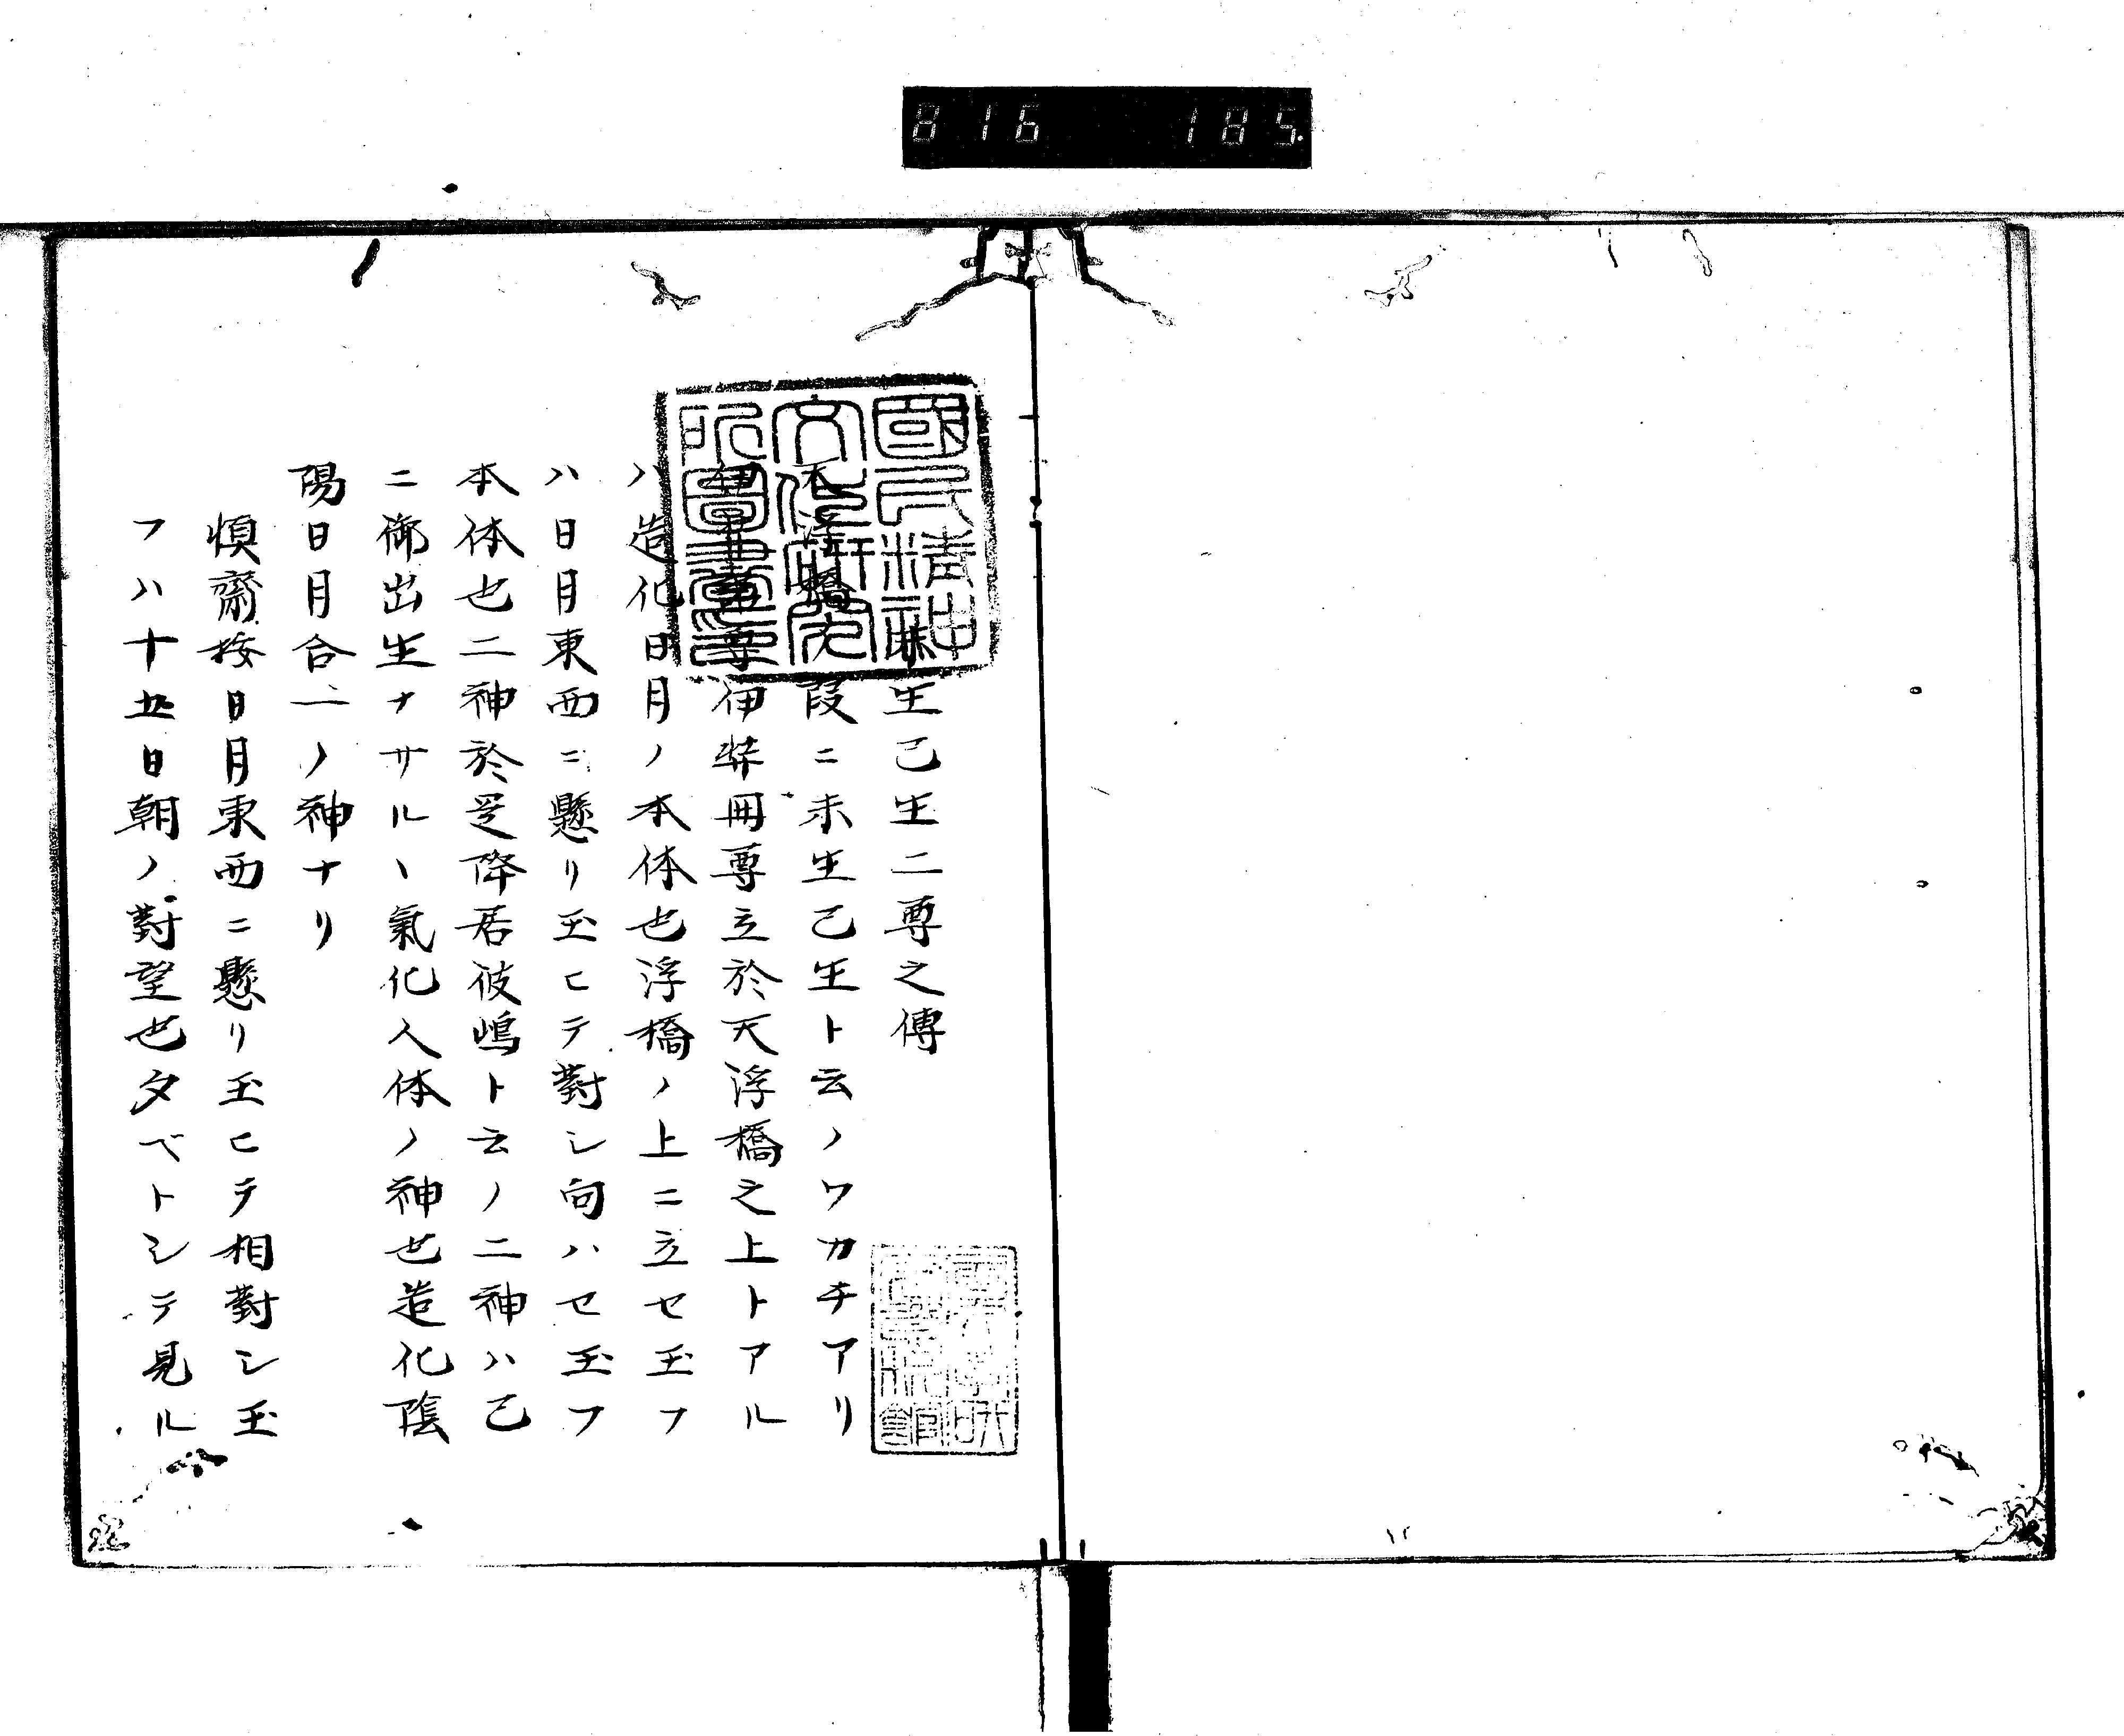 816 185.
國民精神
文化研究
所圖書印
未生已生二尊之傳
天浮橋 段ニ未生已生ト云ノワカチアリ
伊弉諾尊伊弉冊尊立於天浮橋之上トアル
ハ造化日月ノ本体也浮橋ノ上ニ立セ玉フ
ハ日月東西ニ懸リ玉ヒテ對シ向ハセ玉フ
本体也二神於是降居彼嶋ト云ノ二神ハ已
ニ御出生ナサルヽ氣化人体ノ神也造化陰
陽日月合一ノ神ナリ
慎齋按日月東西ニ懸リ玉ヒテ相對シ玉
フハ十五日朝ノ對望也夕ベトシテ見ル